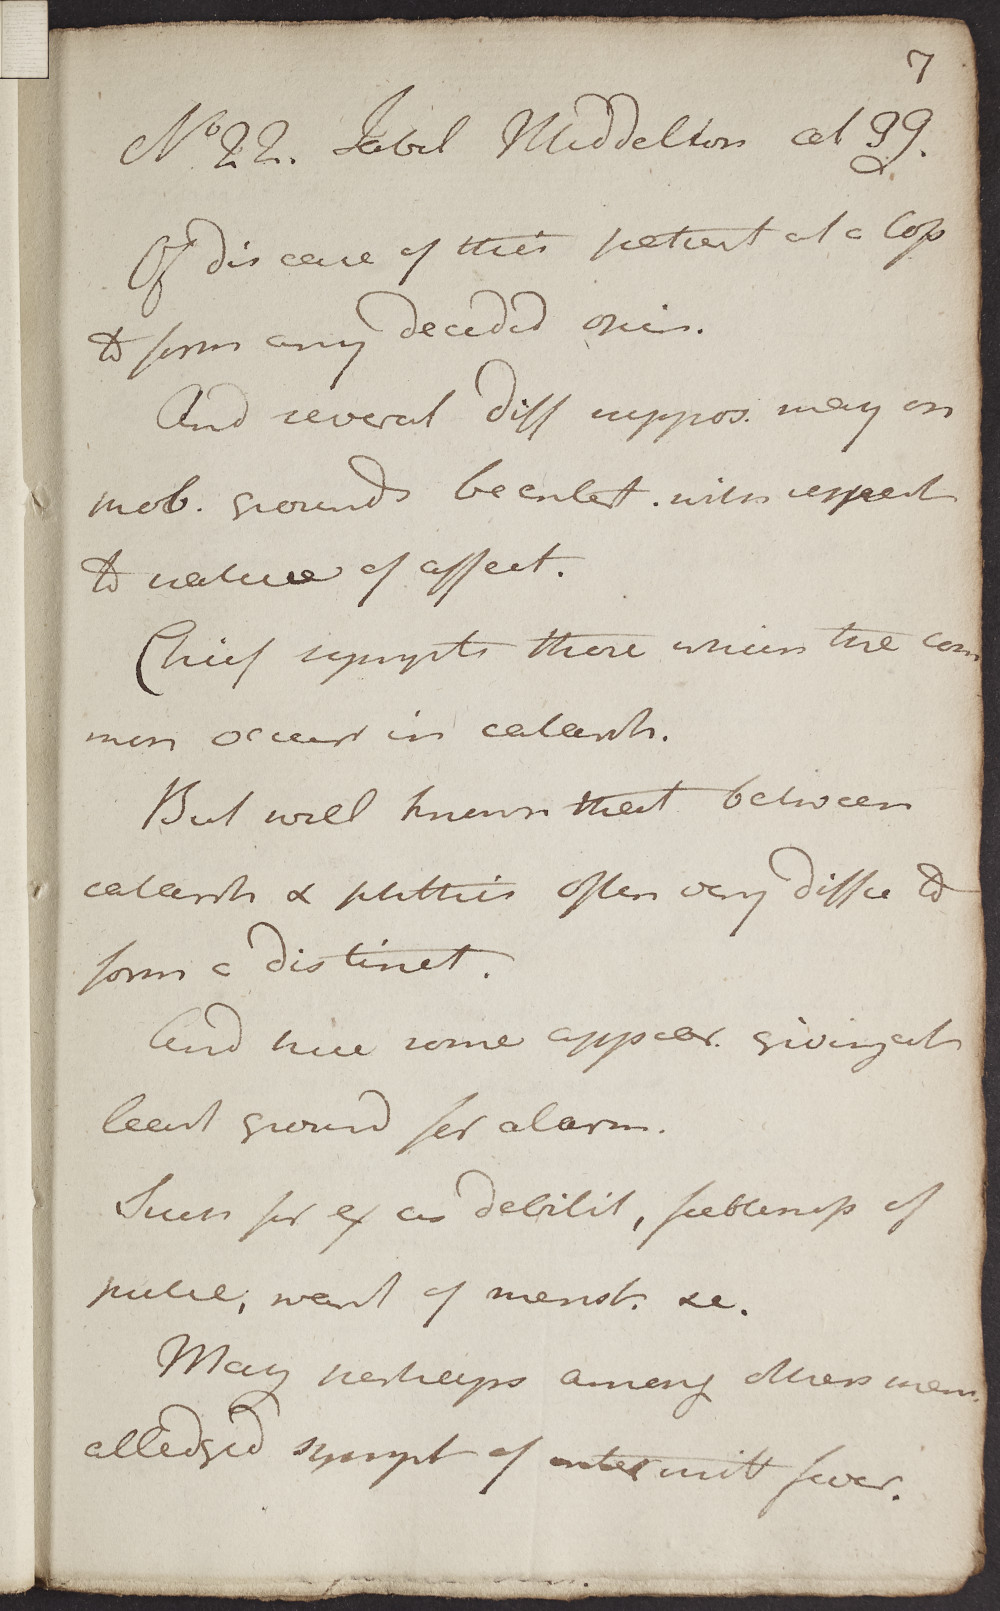 7
No 22. Isabel Middelton aet 39.
Of disease of this patient at a loss
to form any decided opin.
And several diff suppos. may on
prob. grounds be entert. with respect
to nature of affect.
Chief sympts those which the com
mon occur in catarrh.
But well known that between
catarrh & phthisis often very diffic to
form a distinct.
And here some appear. giving at
least ground for alarm.
Such for ex as debilit, feebleness of
pulse, want of menst. &c.
May perhaps among others men.
alledged sympt of intermitt fever.